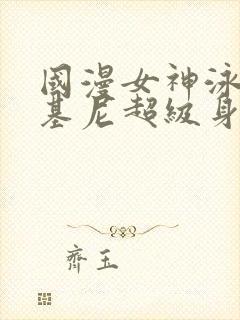 國漫女神泳
基尼超級身
齊玉